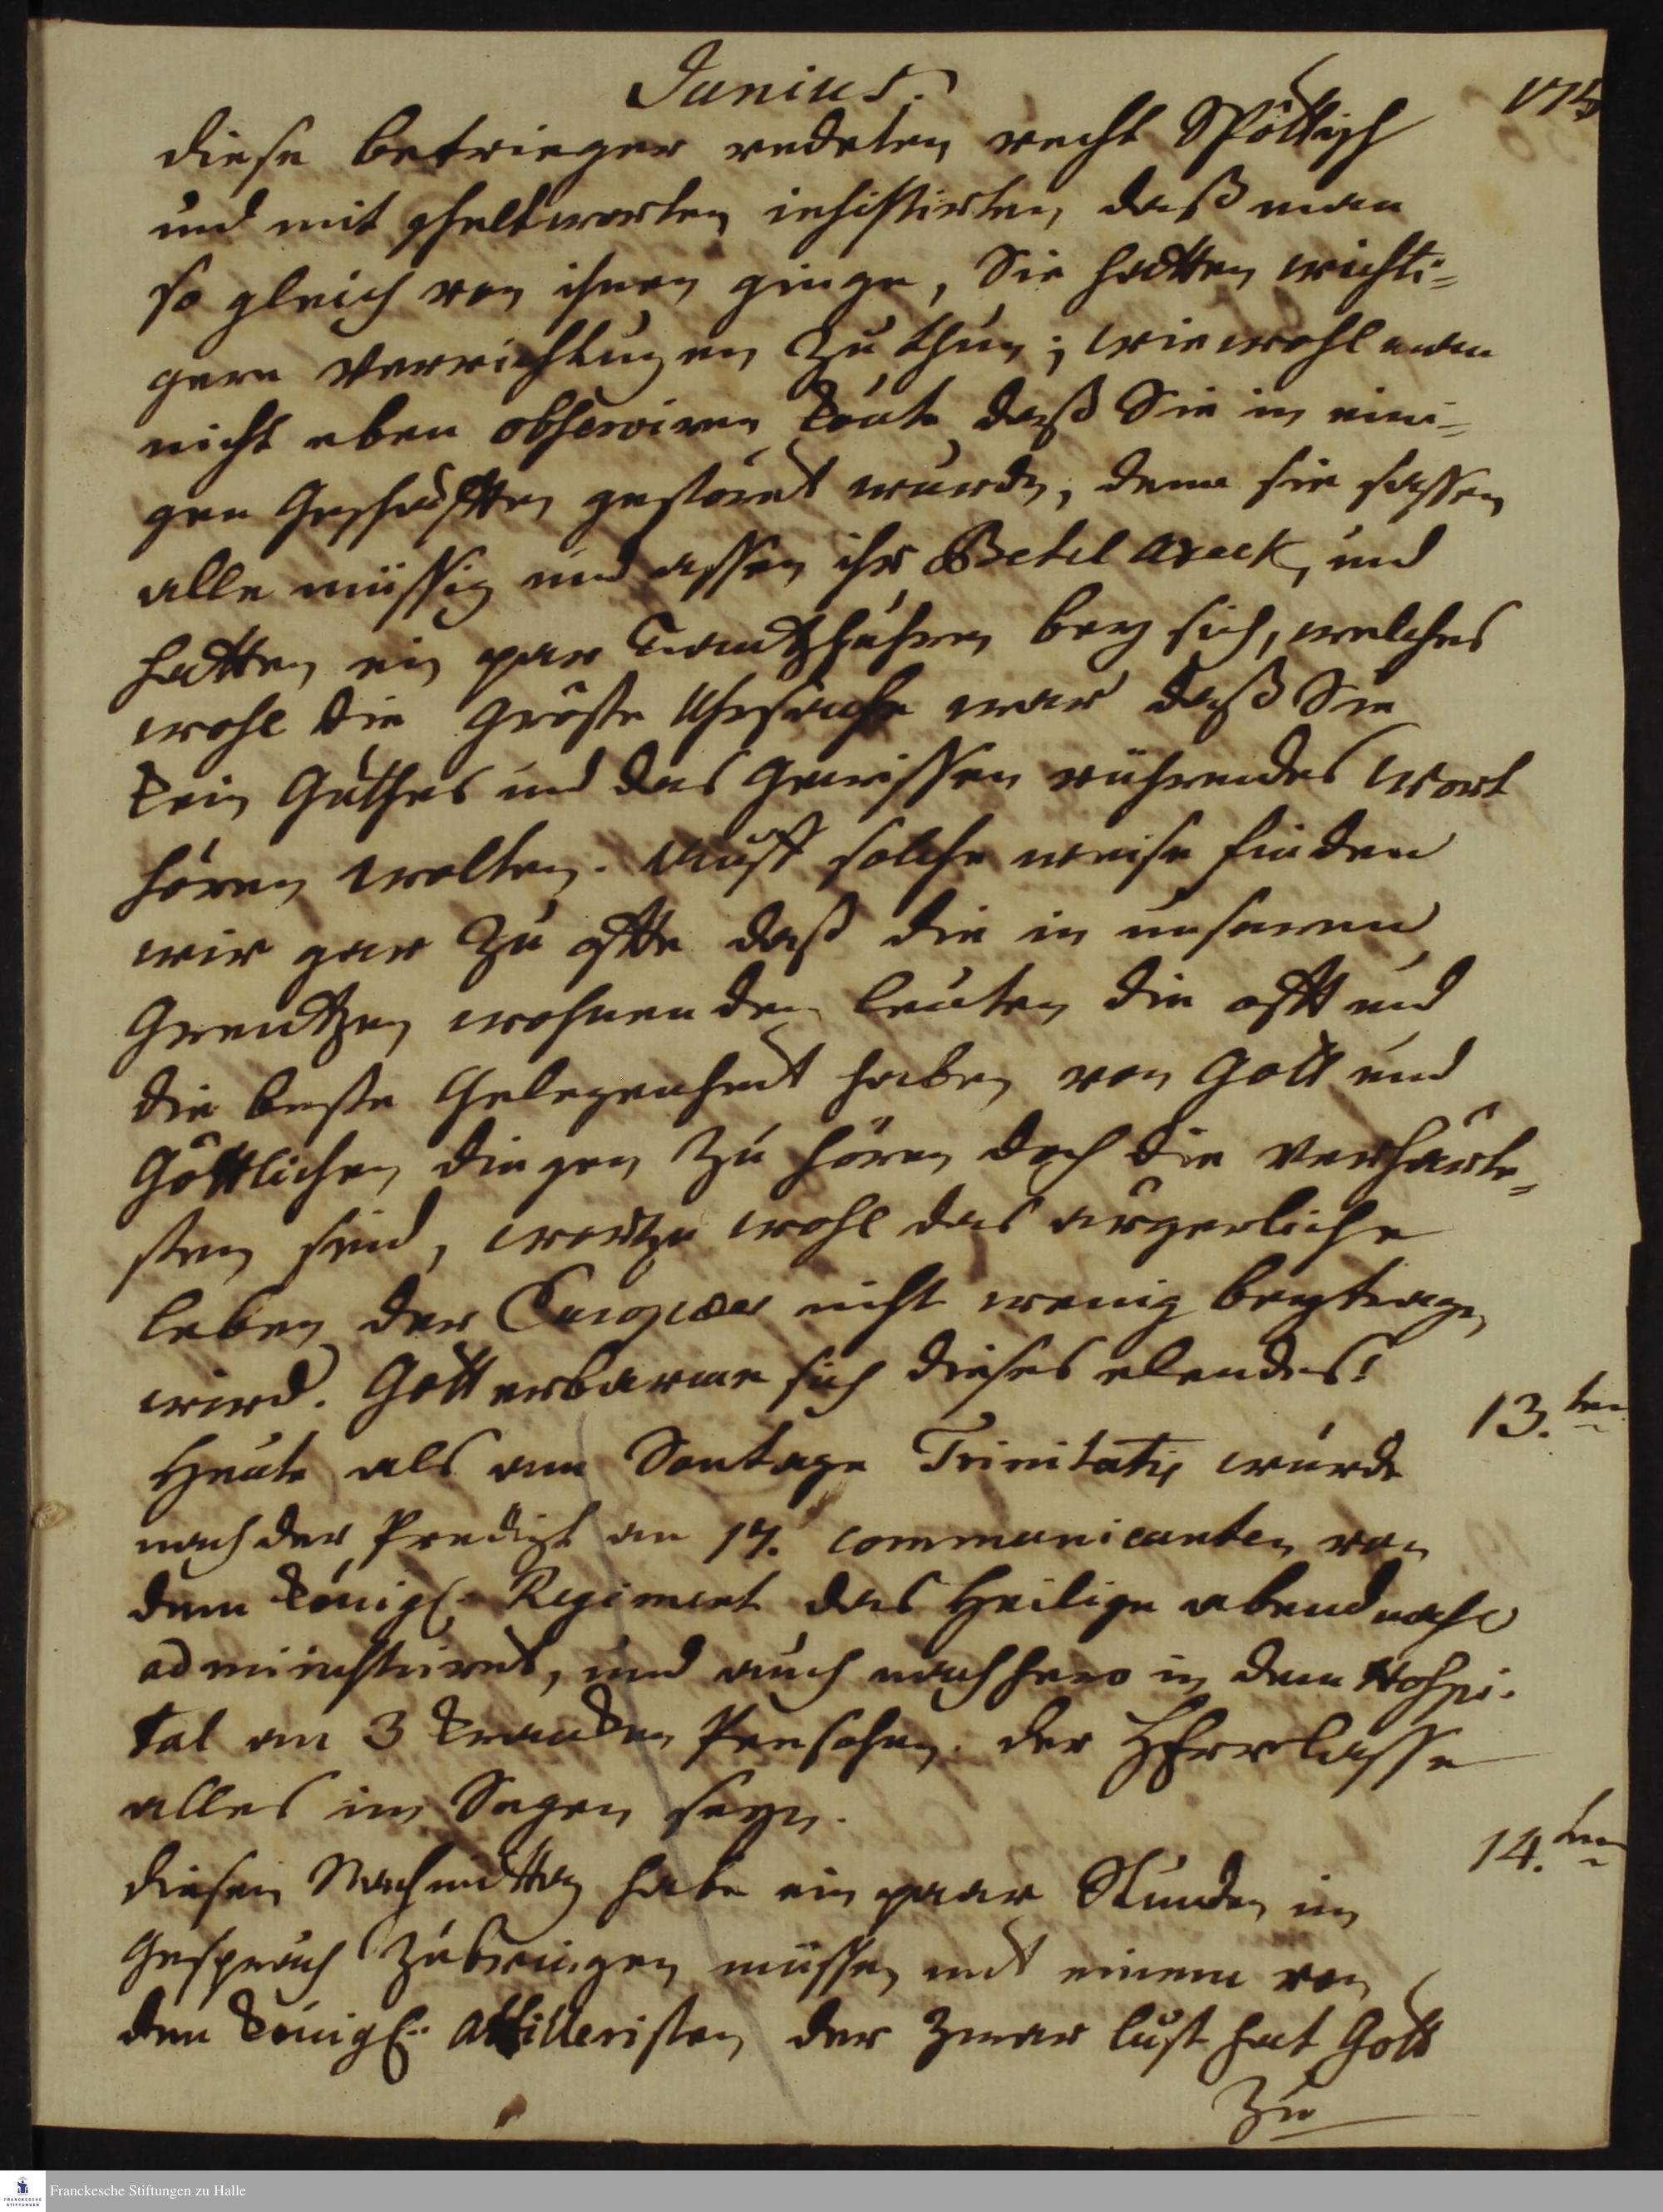 Junius.
175
diese betrieger redeten recht Spöttisch
und mit scheltworten insistirten, daß man
so gleich von ihnen ginge, Sie hätten wichti=
gere Verrichtungen zu thun; wiewohl man
nicht eben observiren konte daß Sie in eini=
gen Geschäfften gestöret wurden, denn sie sassen
alle müssig und assen ihr Betel Areck, und
hatten ein paar Tantzhuhren bey sich, welches
wohl die gröste Uhrsache war daß Sie
kein Guthes und das gewissen rührendes Wort
hören wolten. Auff solche weise finden
wir gar zu offte daß die in unseren
Grentzen wohnenden leuten die offt und
die beste Gelegenheit haben von Gott und
Göttlichen dingen zu hören doch die verhärte=
sten sind, wortzu wohl das ärgerliche
leben der Europæer nicht wenig beytragen
wird. Gott erbarme sich dieses elendes!
13.ten
Heute als am Sontage Trinitatis wurde
nach der Predigt an 17. communicanten von
dem königl. Regiment das Heilige abendmahl
administriret, und auch nachhero in dem Hospi-
tal an 3 krancken Persohnen. der HErr lasse
alles im Segen seyn.
14.ten
diesen Nachmittag habe ein paar Stunden im
Gespräch zubringen müssen mit einem von
den königl. Artilleristen der zwar lust hat Gott
zu
Franckesche Stiftungen zu Halle
FRANCKESCHE
STIFTUNGEN